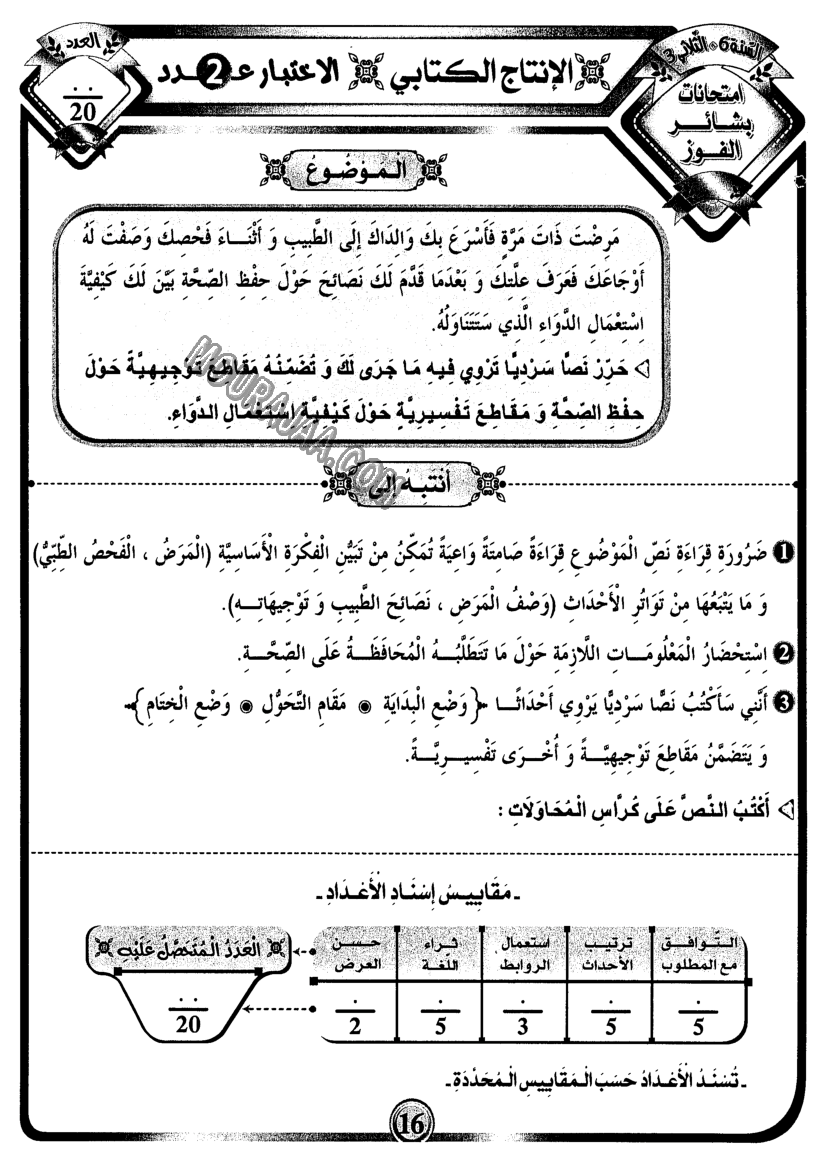 السّنة 6 - الثّلاثي 3
امتحانات
بشائر
الفوز
الإنتاج الكتابي
الاختبار عـ2ـدد
العدد
20
الْمَوْضُوعُ
مَرِضْتَ ذَاتَ مَرَّةٍ فَأَسْرَعَ بِكَ وَالِدَاكَ إِلَى الطَّبِيبِ وَ أَثْنَاءَ فَحْصِكَ وَصَفْتَ لَهُ
أَوْجَاعَكَ فَعَرَفَ عِلَّتِكَ وَ بَعْدَمَا قَدَّمَ لَكَ نَصَائِحَ حَوْلَ حِفْظِ الصِّحَّةِ بَيَّنَ لَكَ كَيْفِيَّةَ
اِسْتِعْمَالِ الدَّوَاءِ الَّذِي سَتَتَنَاوَلُهُ.
◁ حَرِّرْ نَصًّا سَرْدِيًّا تَرْوِي فِيهِ مَا جَرَى لَكَ وَ تُضَمِّنُهُ مَقَاطِعَ تَوْجِيهِيَّةً حَوْلَ
حِفْظِ الصِّحَّةِ وَ مَقَاطِعَ تَفْسِيرِيَّةٍ حَوْلَ كَيْفِيَّةِ اِسْتِعْمَالِ الدَّوَاءِ.
MOURAJAA.COM
أَنْتَبِهُ إِلَى
1 ضَرُورَةِ قِرَاءَةِ نَصِّ الْمَوْضُوعِ قِرَاءَةً صَامِتَةً وَاعِيَةً تُمَكِّنُ مِنْ تَبَيُّنِ الْفِكْرَةِ الْأَسَاسِيَّةِ (الْمَرَضُ ، الْفَحْصُ الطِّبِّيُّ)
وَ مَا يَتْبَعُهَا مِنْ تَوَاتُرِ الْأَحْدَاثِ (وَصْفُ الْمَرَضِ ، نَصَائِحُ الطَّبِيبِ وَ تَوْجِيهَاتِهِ).
2 اِسْتِحْضَارُ الْمَعْلُومَاتِ اللَّازِمَةِ حَوْلَ مَا تَتَطَلَّبُهُ الْمُحَافَظَةُ عَلَى الصِّحَّةِ.
3 أَنَّنِي سَأَكْتُبُ نَصًّا سَرْدِيًّا يَرْوِي أَحْدَاثًا {وَضْعِ الْبِدَايَةِ ◉ مَقَامِ التَّحَوُّلِ ◉ وَضْعِ الْخِتَامِ}
وَ يَتَضَمَّنُ مَقَاطِعَ تَوْجِيهِيَّةً وَ أُخْرَى تَفْسِيرِيَّةً.
◁ أَكْتُبُ النَّصَّ عَلَى كُرَّاسِ الْمُحَاوَلَاتِ :
- مَقَايِيسُ إِسْنَادِ الْأَعْدَادِ -
التّوافق مع المطلوب
ترتيب الأحداث
استعمال الروابط
ثراء اللّغة
حسن العرض
الْعَدَدُ الْمُتَحَصَّلُ عَلَيْهِ
5
5
3
5
2
20
- تُسْنَدُ الْأَعْدَادُ حَسَبَ الْمَقَايِيسِ الْمُحَدَّدَةِ -
16